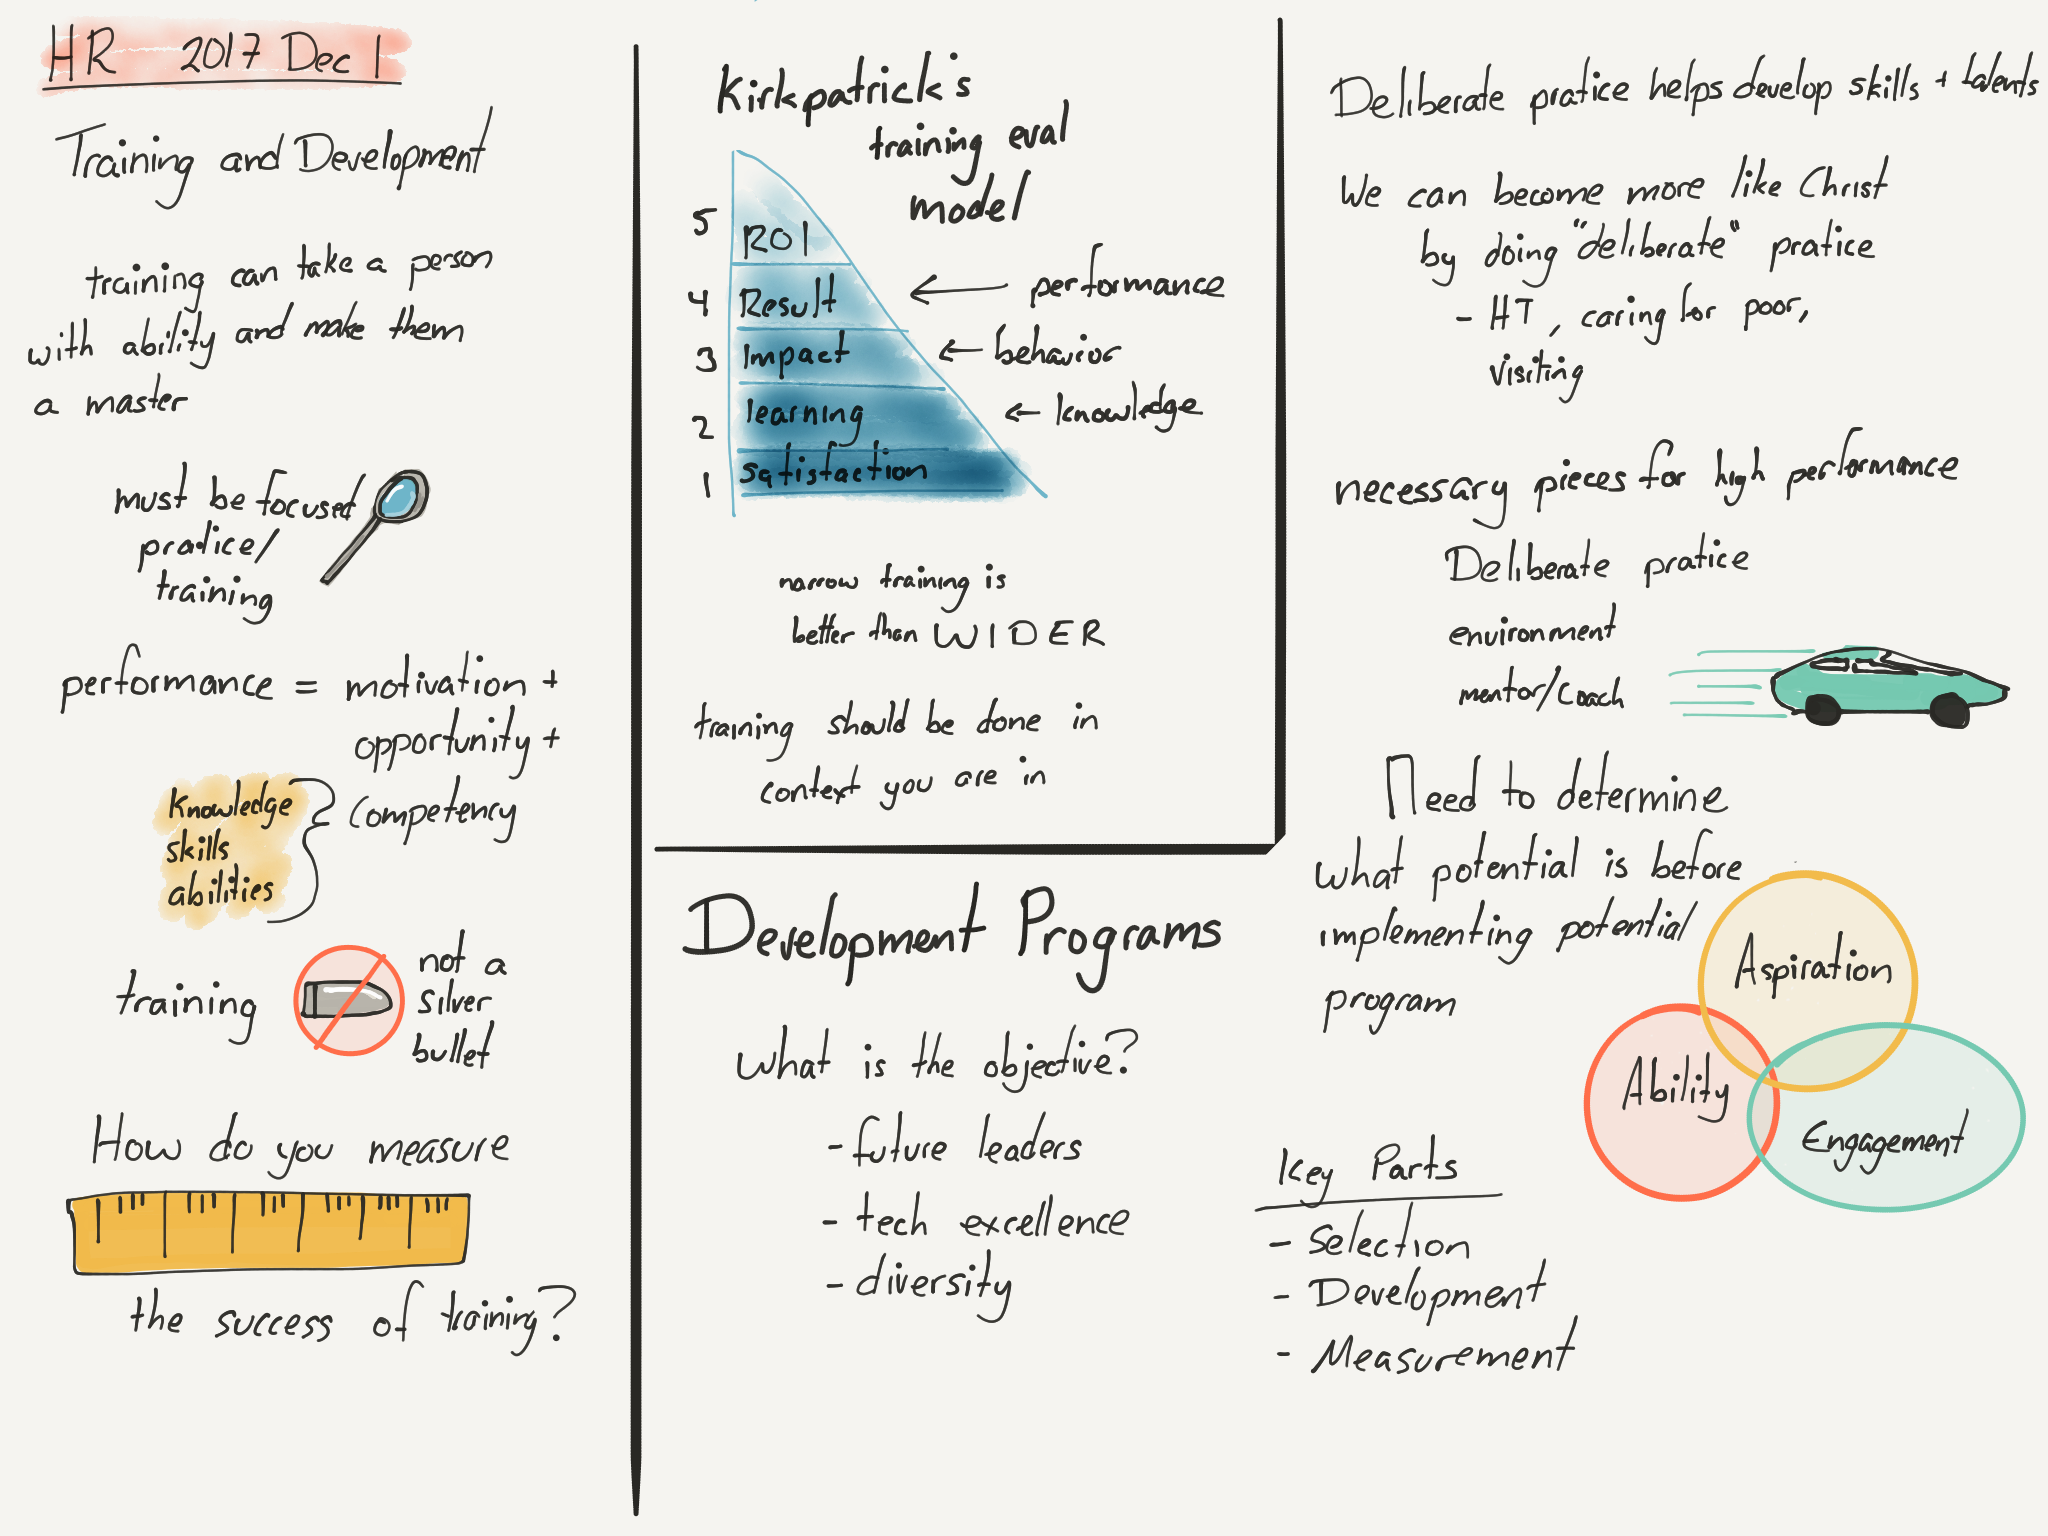 HR 2017 Dec 1
Training and Development
training can take a person
with ability and make them
a master
must be focused
pratice/
training
performance = motivation +
opportunity +
competency
Knowledge
skills
abilities
training
not a
silver
bullet
How do you measure
the success of training?
Kirkpatrick's
training eval
model
5 ROI
4 Result ← performance
3 Impact ← behavior
2 learning ← knowledge
1 satisfaction
narrow training is
better than WIDER
training should be done in
context you are in
Development Programs
What is the objective?
- future leaders
- tech excellence
- diversity
Deliberate pratice helps develop skills + talents
We can become more like Christ
by doing "deliberate" pratice
- HT, caring for poor,
visiting
necessary pieces for high performance
Deliberate pratice
environment
mentor/coach
Need to determine
what potential is before
implementing potential
program
Aspiration
Ability
Engagement
Key Parts
- Selection
- Development
- Measurement